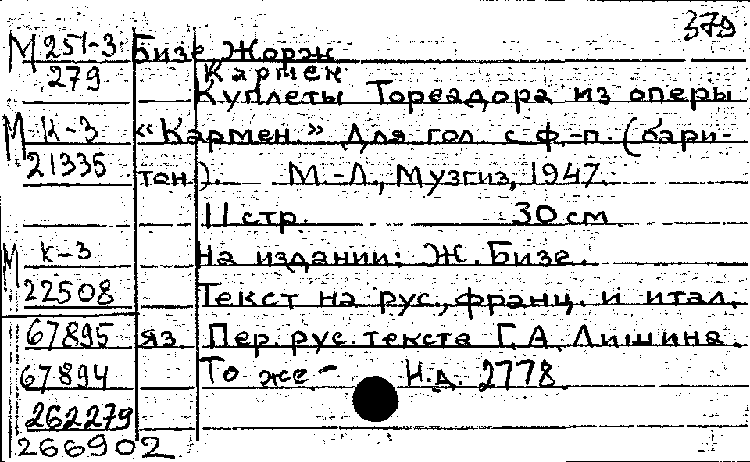 379
М 251-3 Бизе Жорж
279 Кармен
Куплеты Тореадора из оперы
М К-3 «Кармен.» Для гол. с ф.-п. (бари-
21335 тон). М.-Л., Музгиз, 1947.
11 стр. 30 см
М К-3 На издании: Ж. Бизе.
22508 Текст на рус., франц. и итал.
67895 яз. Пер. рус. текста Г. А. Лишина.
67894 То же - Н.д. 2778
262279
266902